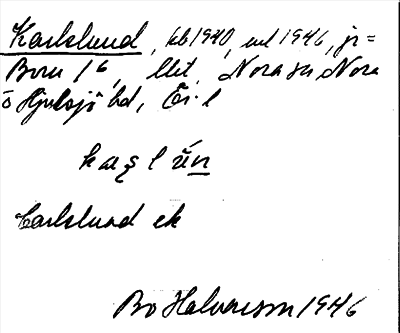 Karlslund, kb 1940, ul 1946, jr=
Boru 16, llit, Nora sn Nora
o Hjulsjö hd, Ör. l
Carlslund ek
Bo Halvarsson 1946